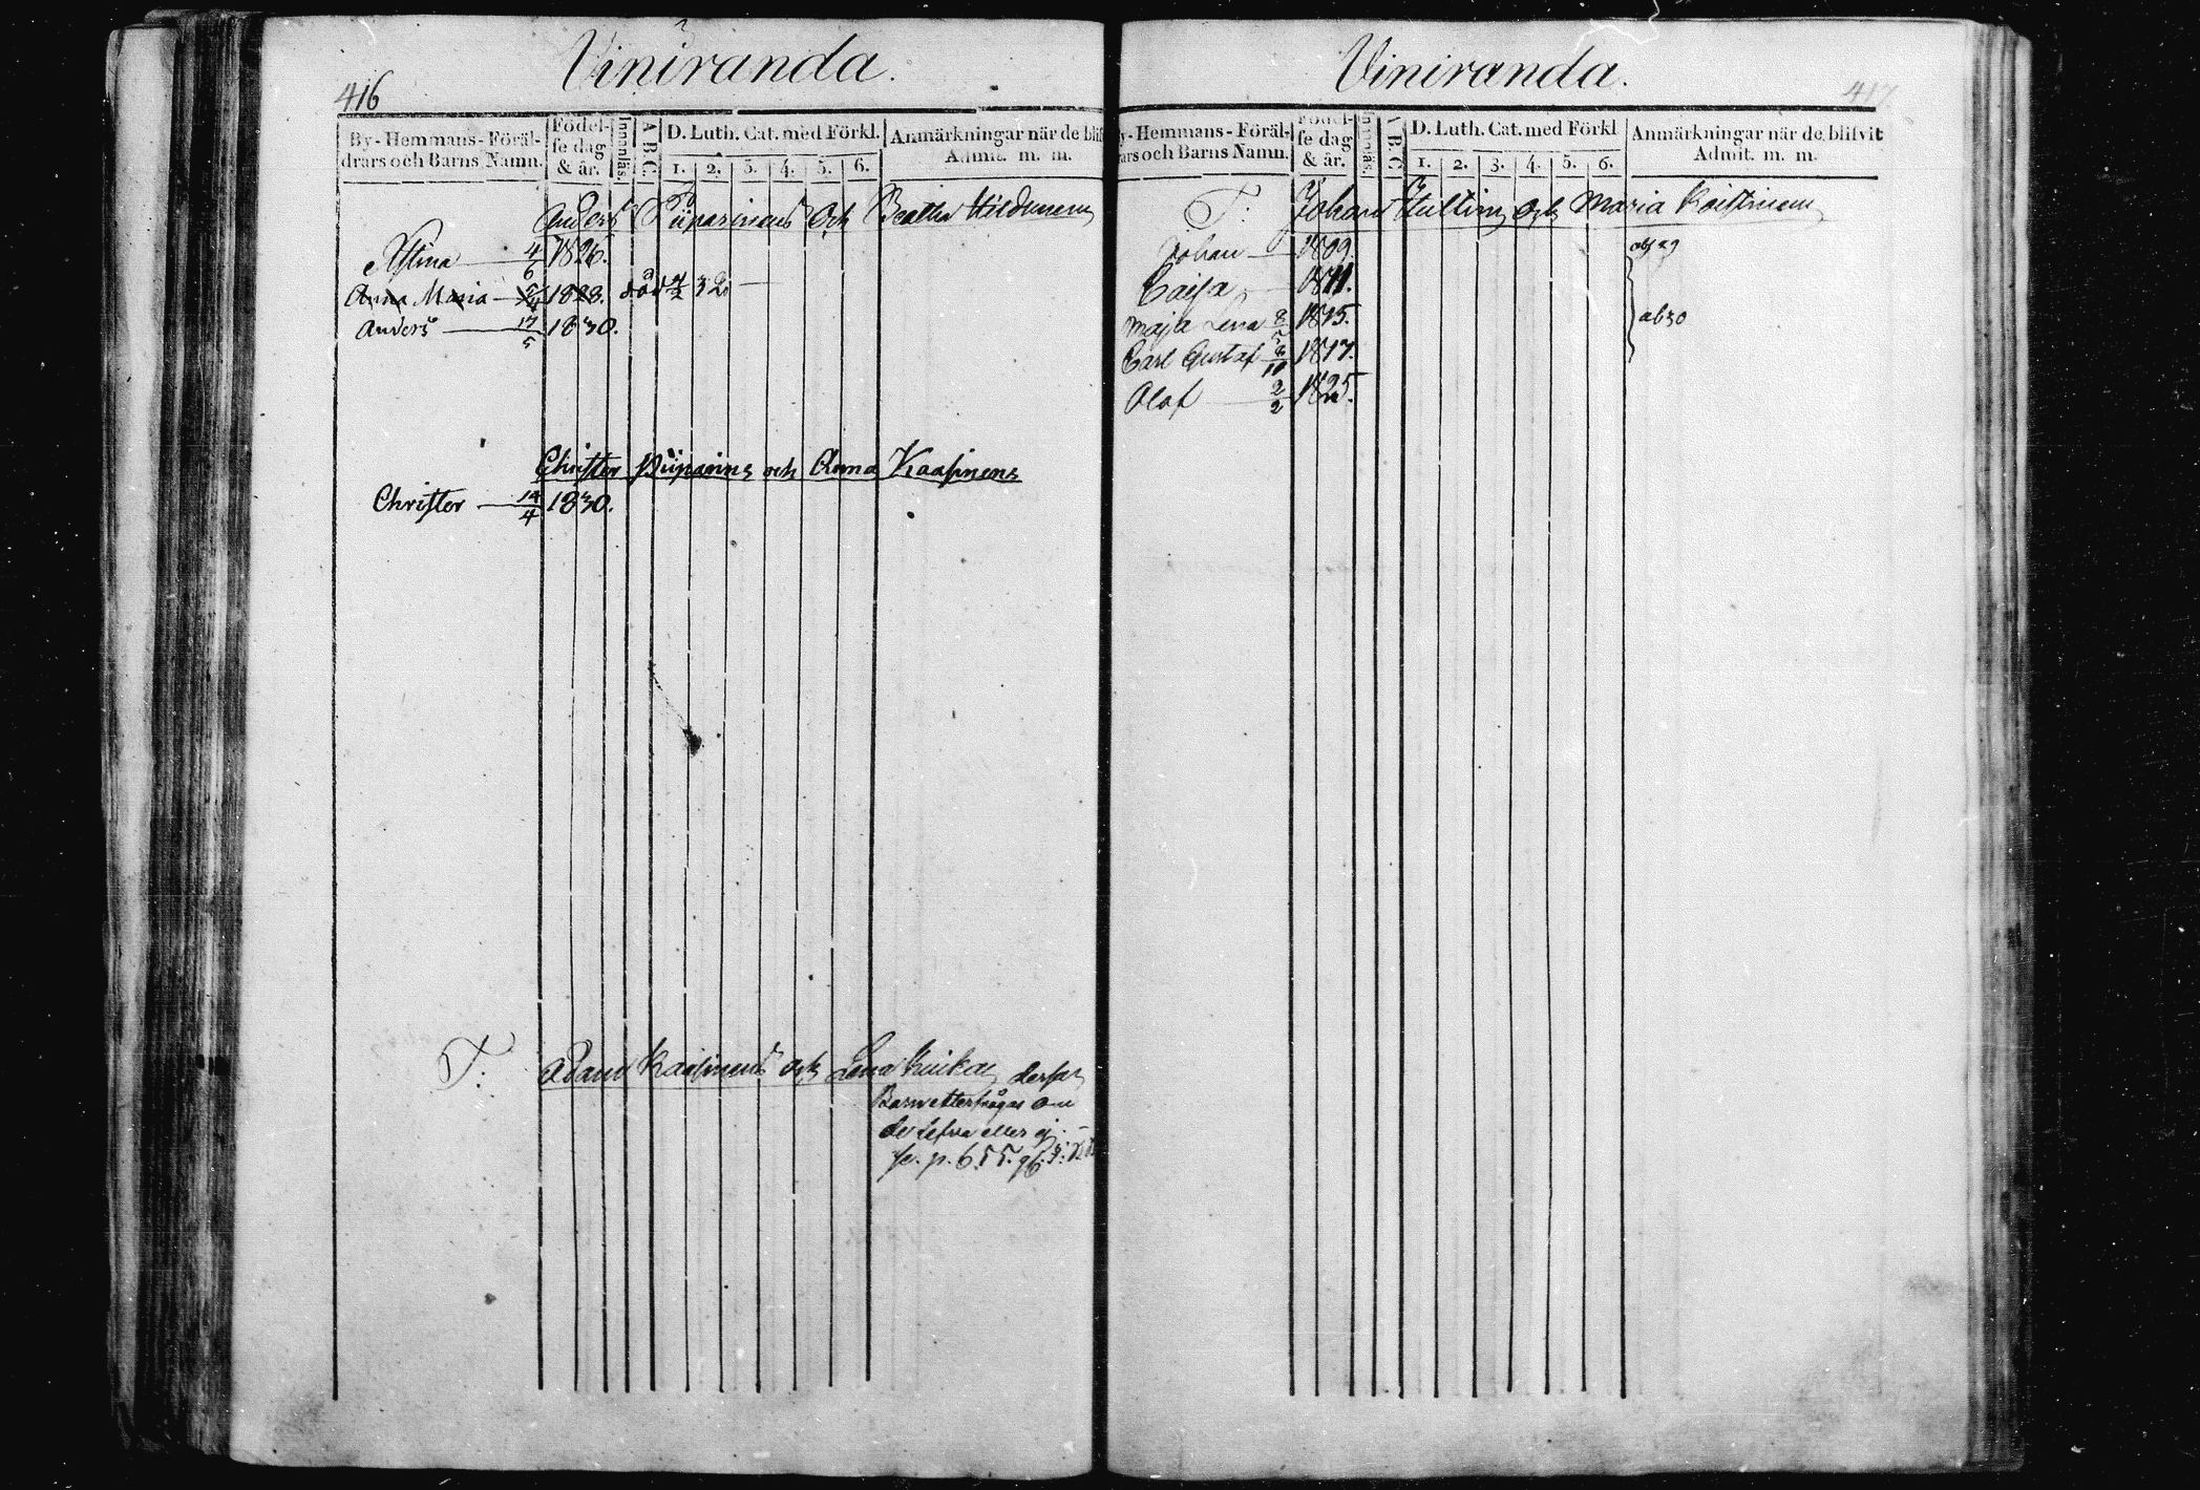 Viniranda.
416
By-Hemmans-Föräl-
drars och Barns Namn.
Födel-
se dag
& år.
Innanläs.
A B C.
D. Luth. Cat. med Förkl.
1. 2. 3. 4. 5. 6.
Anmärkningar när de blif
Admit. m. m.
Anders Piiparinens och Beatha
Stina 4/6 1826.
Anna Maria 1828. död 32.
Anders 17/5 1830.
Christer Piiparins och Anna Kaasinens
Christer 14/4 1830.
T: Adam Kaasinens och Lena dessas
Barn efterfrågas om
de lefva eller ej
se. p. 655.
Viniranda.
417
y-Hemmans-Föräl-
ars och Barns Namn.
Födel-
se dag
& år.
nnanläs.
A B C.
D. Luth. Cat. med Förkl
1. 2. 3. 4. 5. 6.
Anmärkningar när de blifvit
Admit. m. m.
T: Johan Hulting och Maria
Johan 1809.
Caisa 1811.
Maja Lena 1815. ab30
Carl Gustaf 1817.
Olof 2/2 1825.